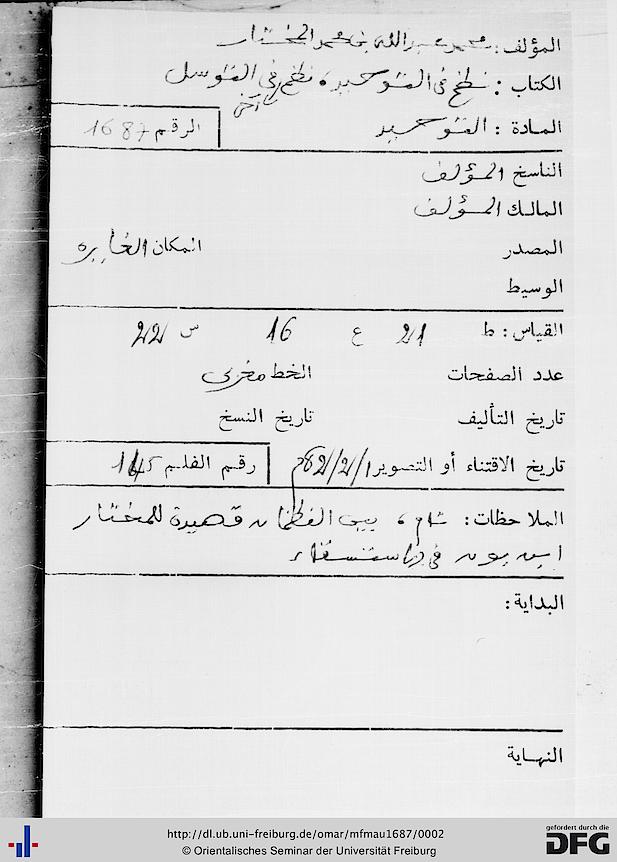 المؤلف: محمد عبد الله بن محمد المختار
الكتاب: نظم في التوحيد، نظم في التوسل
آخر
المادة: التوحيد
الرقم 1687
الناسخ المؤلف
المالك المؤلف
المصدر المكان
الوسيط
القياس: ط 21 ع 16 س 22
عدد الصفحات الخط مغربي
تاريخ التأليف تاريخ النسخ
تاريخ الاقتناء أو التصوير
رقم الفلم 145
الملاحظات: تام، بين النظمان قصيدة للمختار
ابن بون في الاستسقاء
البداية:
النهاية
http://dl.ub.uni-freiburg.de/omar/mfmau1687/0002
© Orientalisches Seminar der Universität Freiburg
gefördert durch die
DFG